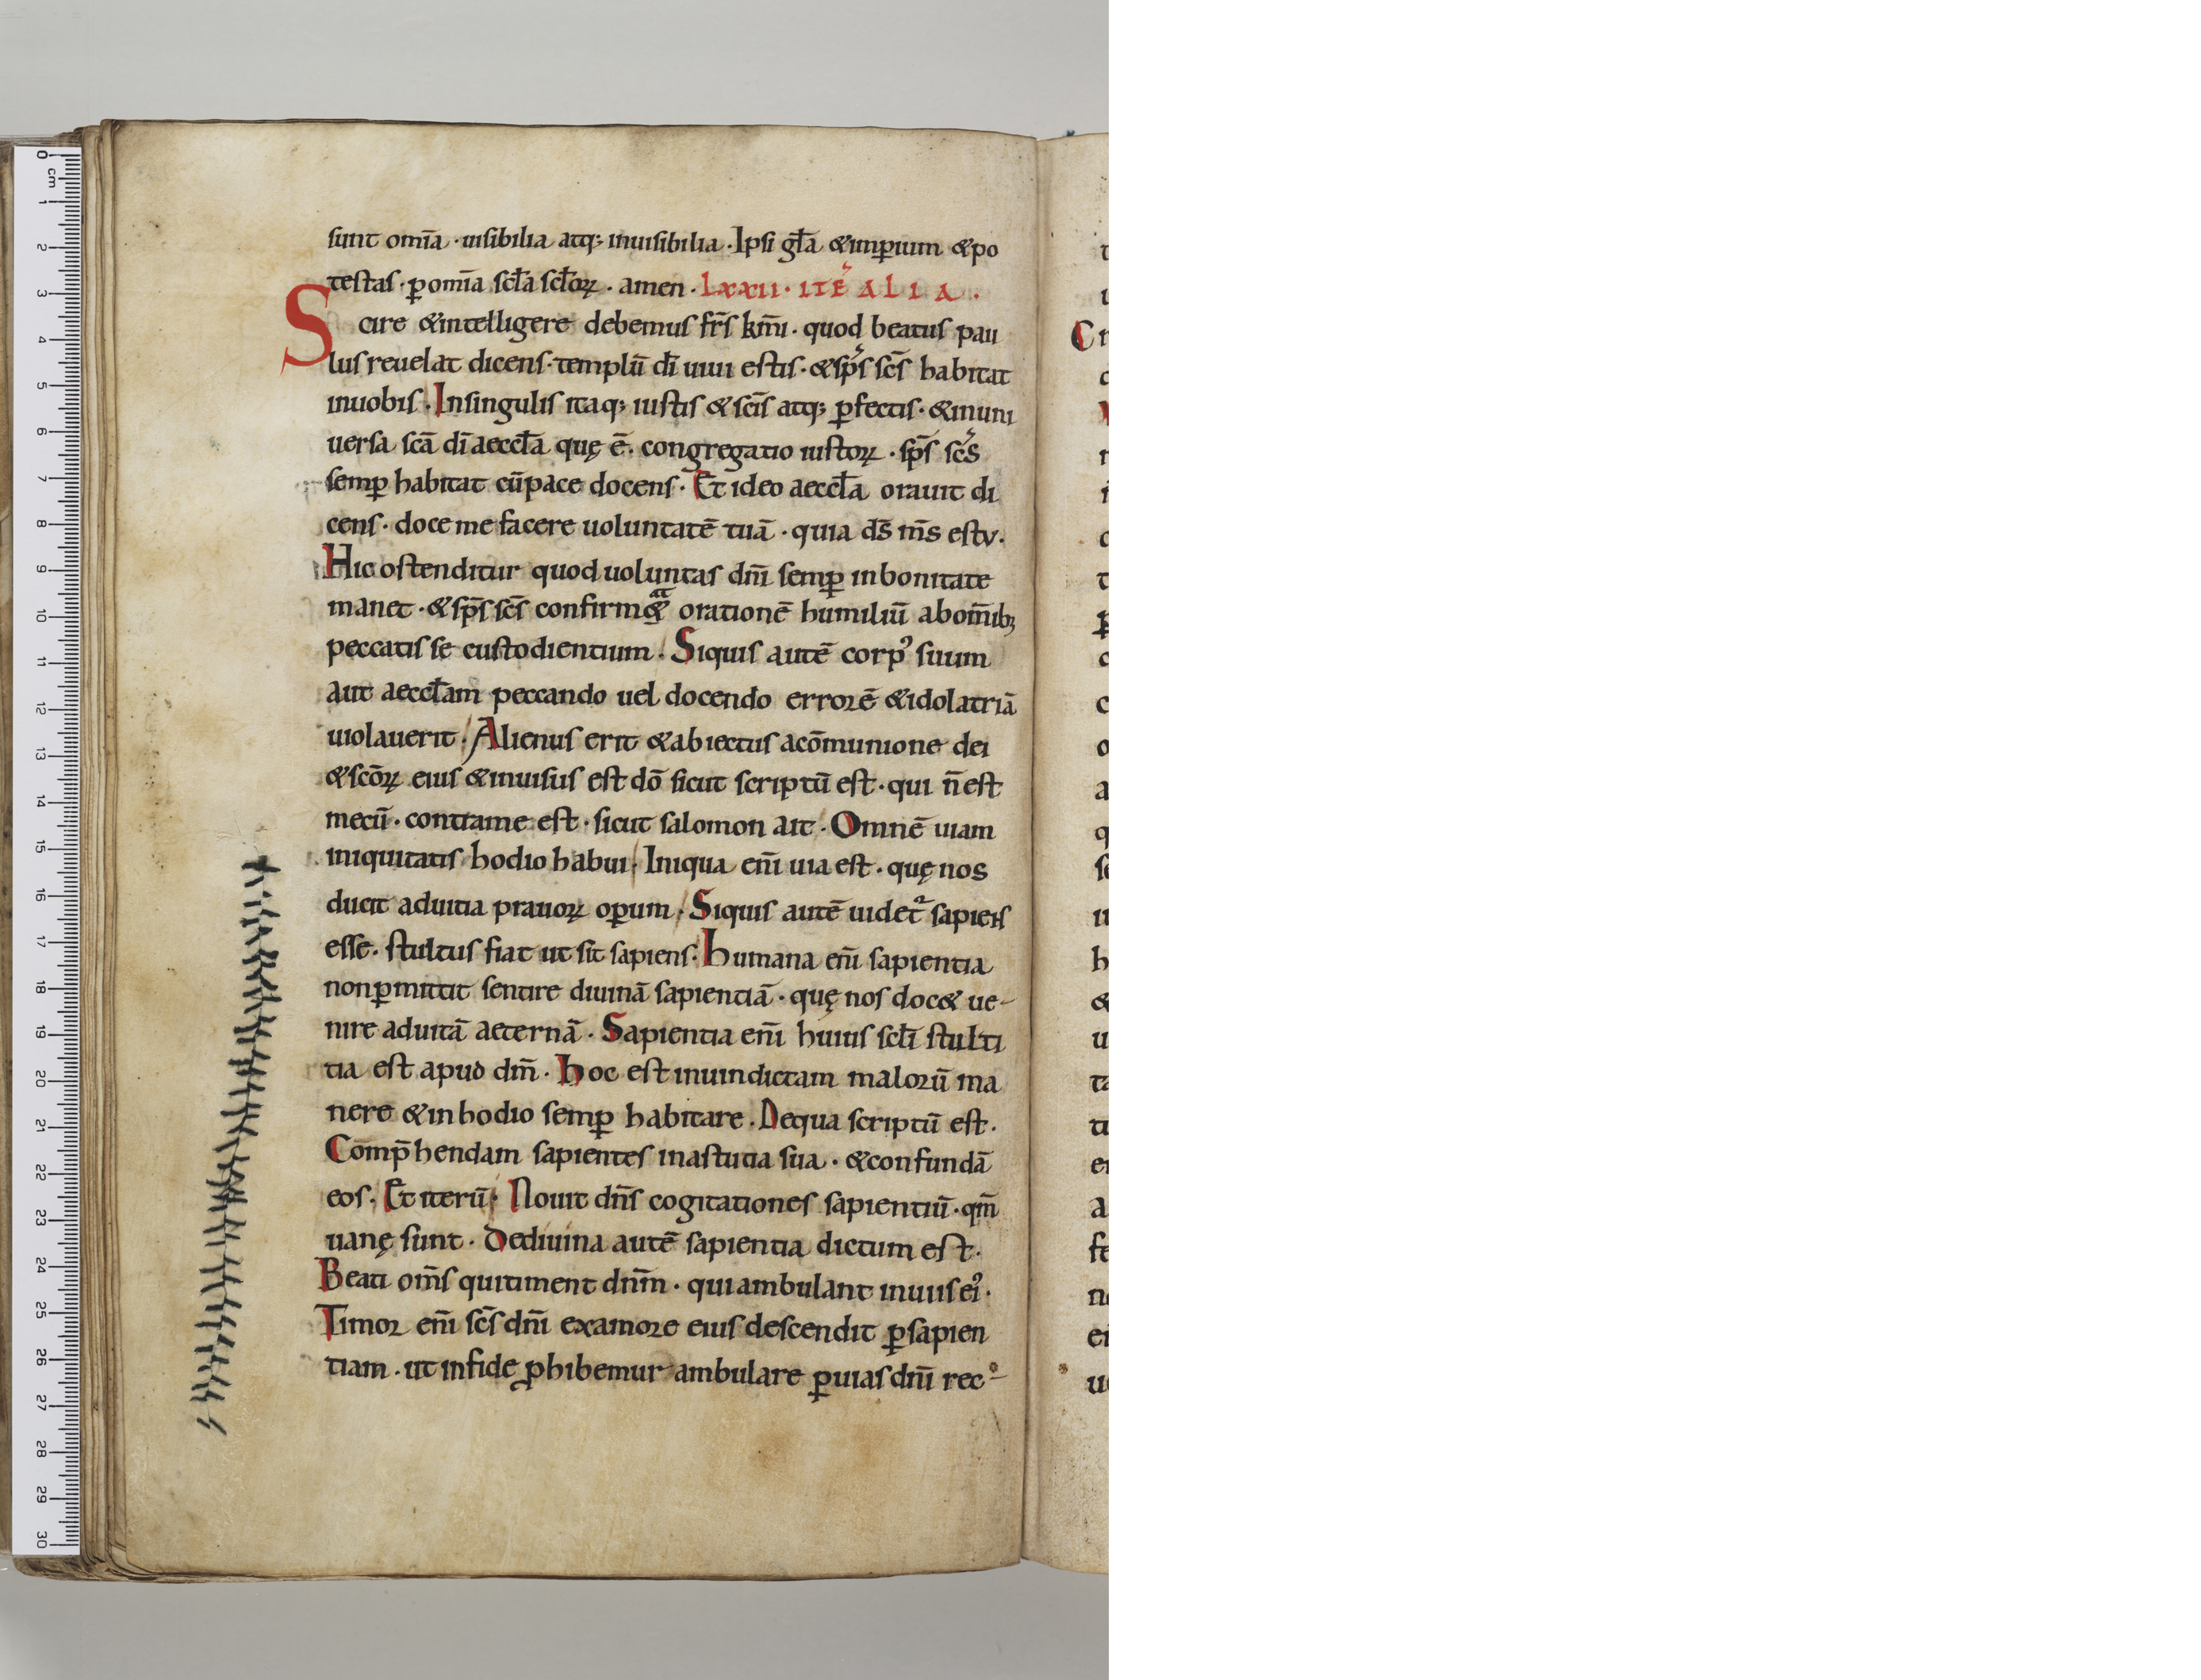 sunt omīa · uisibilia atq; inuisibilia · Ipsi gła &imꝑium &po
testas · ꝑ omīa scła scłoꝝ · amen · LXXII · ITĒ ALIA ·
Scire &intelligere debemus fr̄s km̄i · quod beatus pau
lus reuelat dicens · templū dī uiui estis · &sp̄s sc̄s habitat
inuobis · Insingulis itaq; iustis & sc̄is atq; ꝑfectis · &inuni
uersa scā dī aeccła quę ē · congregatio iustoꝝ · sp̄s sc̄s
semꝑ habitat cū pace docens · Et ideo aeccła orauit di
cens · doce me facere uoluntatē tuā · quia ds̄ ms̄ estv ·
Hic ostenditur quod uoluntas dn̄i semꝑ inbonitate
manet · &sp̄s sc̄s confirm& orationē humiliū abom̄ib;
peccatis se custodientium · Siquis autē corpꝰ suum
aut aeccłam peccando uel docendo errorē &idolatriā
uiolauerit · Alienus erit &abiectus acōmunione dei
&scōꝝ eius &inuisus est dō sicut scriptū est · qui n̄ est
mecū · contrame est · sicut salomon ait · Omnē uiam
iniquitatis hodio habui · Iniqua eni̅ uia est · quę nos
ducit aduitia prauoꝝ oꝑum · Siquis autē uidet᷑ sapiens
esse · stultus fiat ut sit sapiens · Humana eni̅ sapientia
nonꝑmittit sentire diuinā sapientiā · quę nos doc& ue-
nire aduitā aeternā · Sapientia eni̅ huius scłi stulti
tia est apud dm̄ · Hoc est inuindictam malorū ma
nere &in hodio semꝑ habitare · Dequa scriptū est ·
Comp̄hendam sapientes inastutia sua · &confundā
eos · Et iterū · Nouit dn̄s cogitationes sapientiū · qm̄
uanę sunt · Dediuina autē sapientia dictum est ·
Beati om̄s quitiment dnm̄ · qui ambulant inuiis eiꝰ ·
Timor eni̅ sc̄s dn̄i examore eius descendit ꝑsapien
tiam · ut infide ꝓhibemur ambulare ꝑuias dn̄i rec-
0 cm 1 2 3 4 5 6 7 8 9 10 11 12 13 14 15 16 17 18 19 20 21 22 23 24 25 26 27 28 29 30